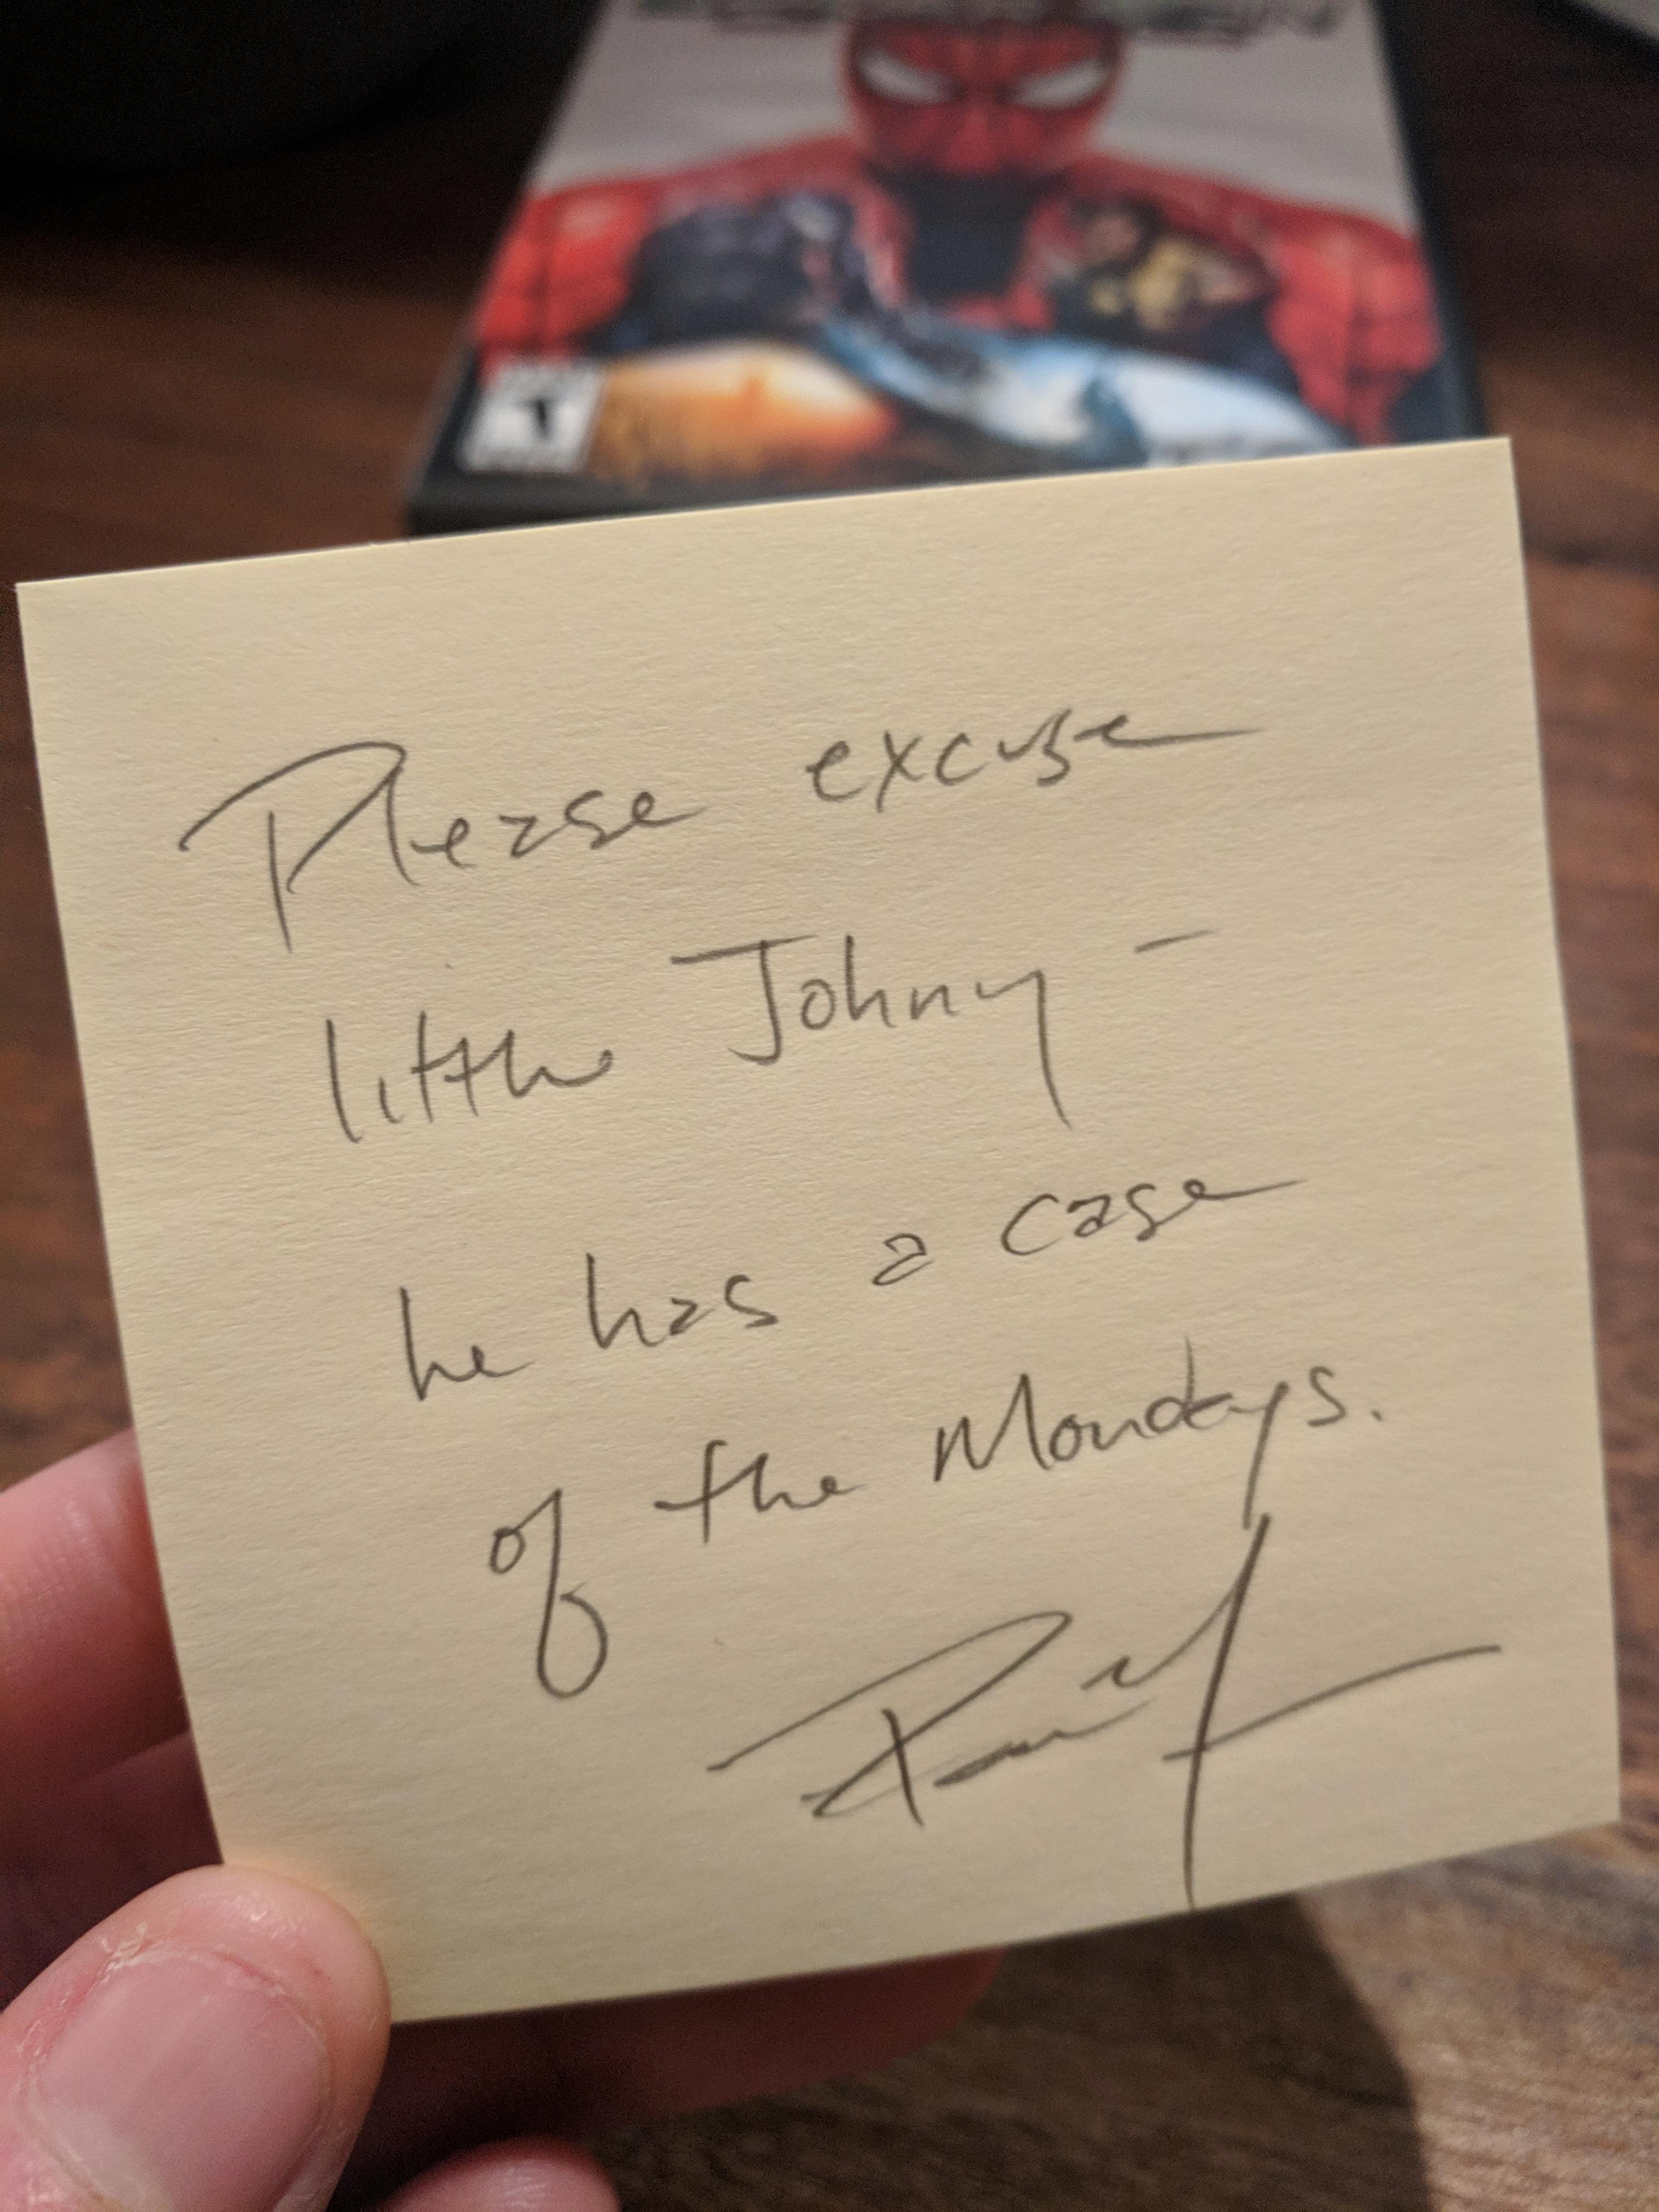 T
Please excuse
little Johny -
he has a case
of the Mondays.